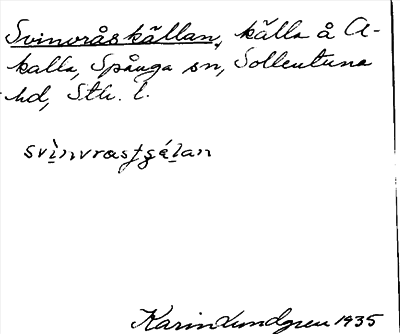 Svinvråskällan, källa å A-
kalla, Spånga sn, Sollentuna
hd, Sth. l.
svìnvrasʃɕǽlan
Karin Lundgren 1935